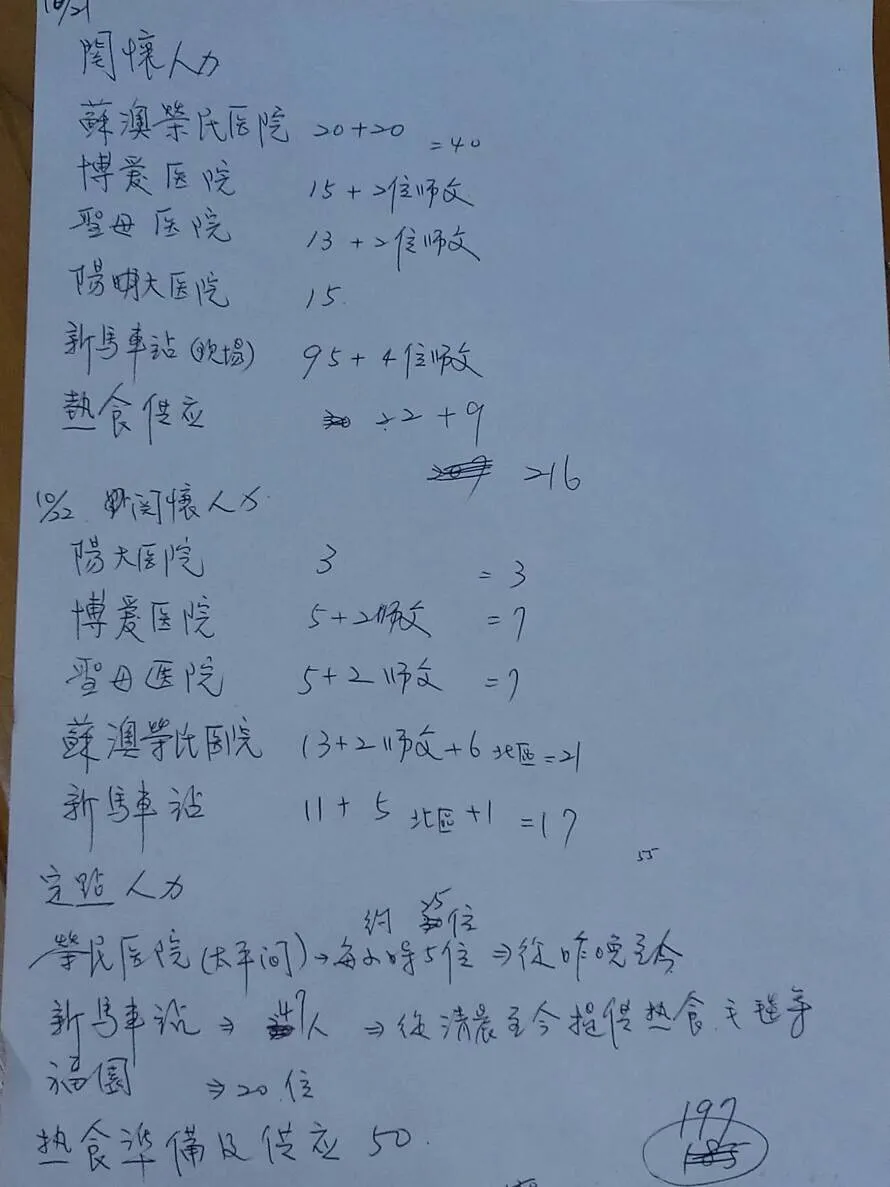 10/21
関懷人力
蘇澳榮民医院 20+20 =40
博爱医院 15+2位师父
聖母医院 13+2位师父
陽明大医院 15
新馬車站(现場) 95+4位师父
熱食供应 22+9
216
10/22 関懷人力
陽大医院 3 =3
博爱医院 5+2师父 =7
聖母医院 5+2师父 =7
蘇澳榮民医院 13+2师父+6北區=21
新馬車站 11+5北區+1 =17
55
定點人力
約25位
榮民医院(太平间)→每小時5位⇒從昨晚至今
新馬車站⇒47人⇒從清晨至今提供热食.毛毯等
福園⇒20位
热食準備及供应 50.
197
185